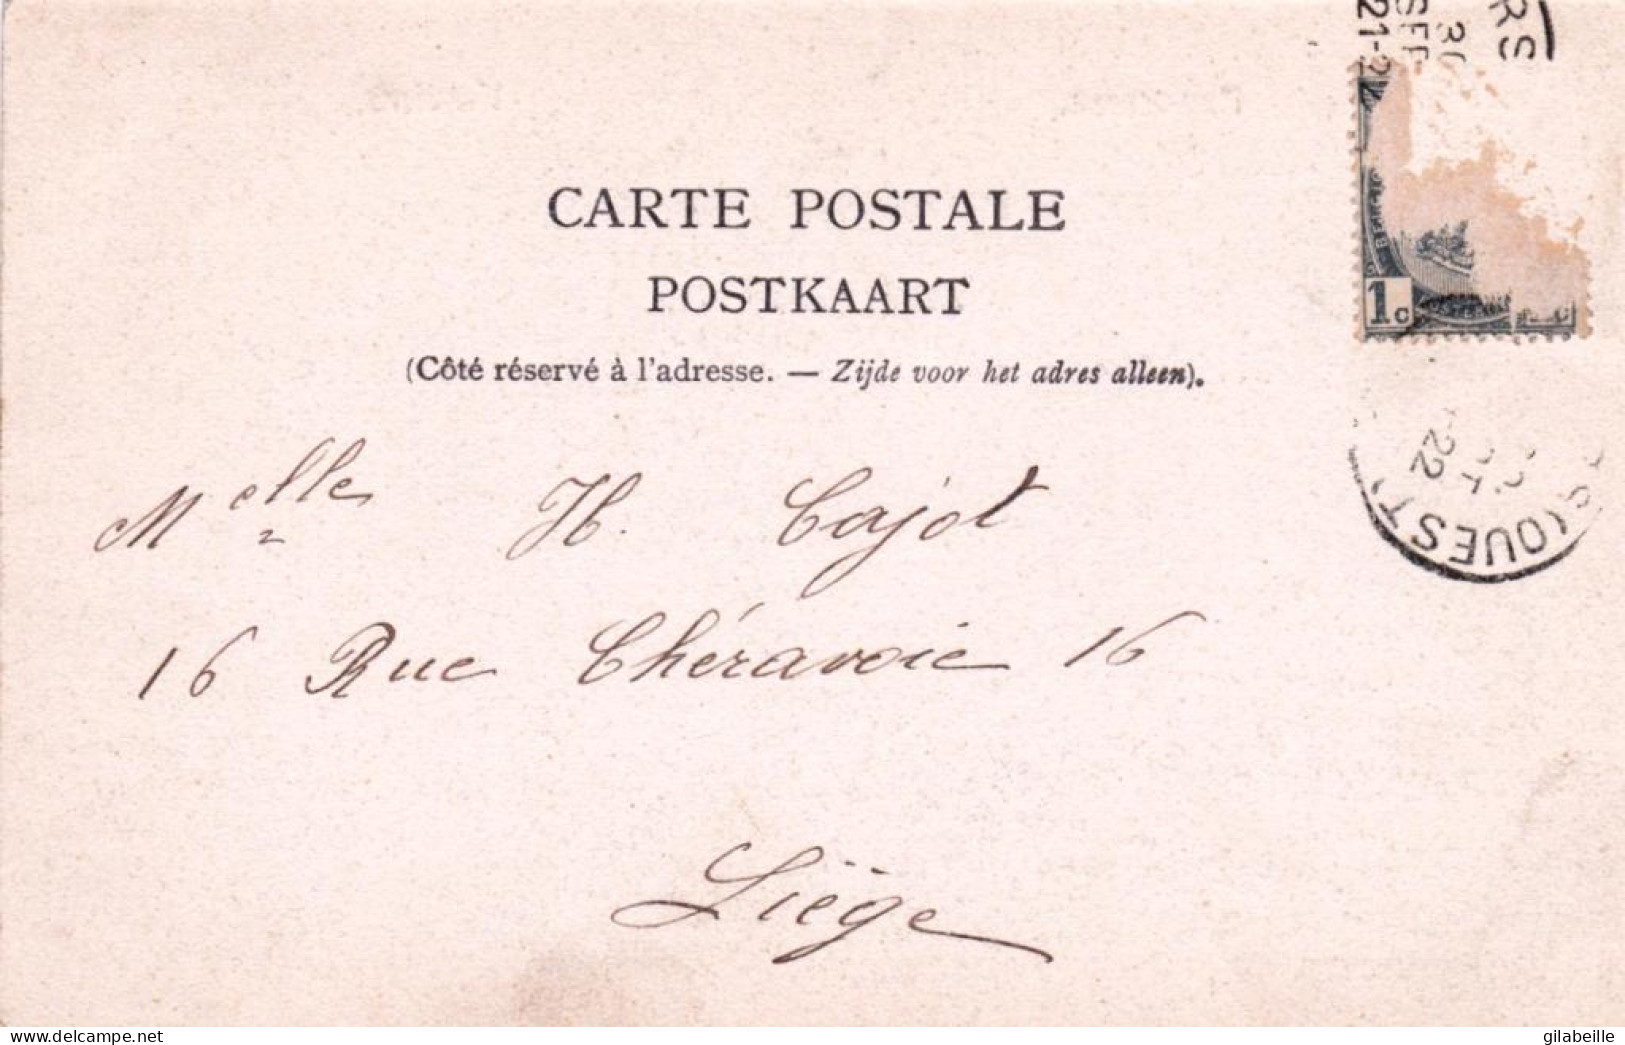 RS
30
SEP
21-2
CARTE POSTALE
POSTKAART
(Côté réservé à l'adresse. — Zijde voor het adres alleen).
1c
22
(OUEST)
Melle H. Cajot
16 Rue Chéravoie 16
Liège
delcampe.net
gilabeille